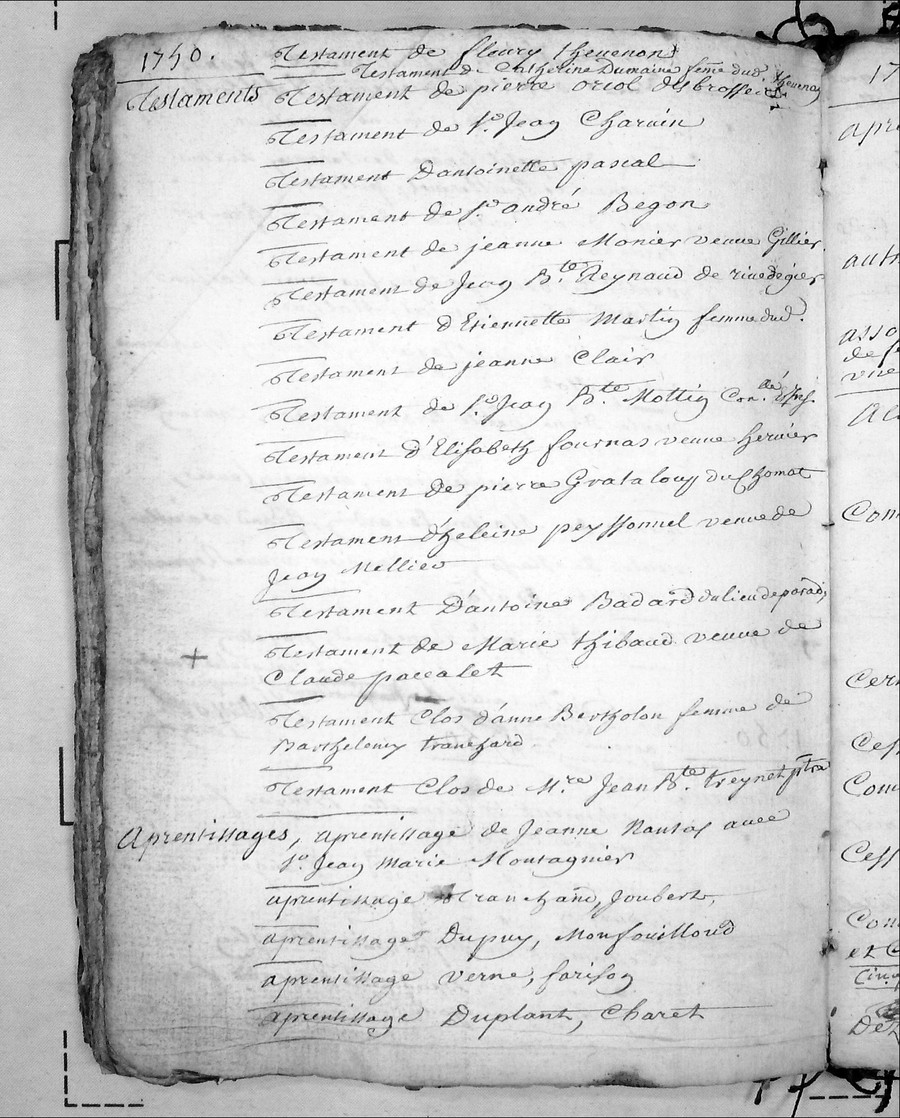 1750. Testament de fleury thevenon
Testament de Catherine Dumaine feme dud. thevenon
Testaments Testament de pierre oriol desbrosses
Testament de Sr. Jean Charvin
Testament D'antoinette pascal
Testament de Sr andré Begon
Testament de jeanne Monier veuve Gillier
Testament de Jean Bte. Reynaud de rivedegier
Testament d'Etiennette Martin femme dud.
Testament de jeanne Clair
Testament de Sr. Jean Bte. Mottin
Testament d'Elisabeth fournas veuve hervier
Testament de pierre Grataloup du Chomat
Testament d'heleine peyssonnel veuve de
Jean Mellier
Testament D'antoine Badard du lieu de
+ Testament de Marie thibaud veuve de
Claude paccalet
Testament Clos d'anne Bertholon femme de
Barthelemy tranchard
Testament Clos de Mre Jean Bte. treynet ptre
Aprentissages, aprentissage de Jeanne avec
Sr. Jean Marie Montagnier
aprentissage tranchand, Joubert,
aprentissage Dupuy, Monfouilloud
aprentissage verne, farison
aprentissage Duplant, Charet
17
apre
autr
asso
de
vire
Com
Cern
Cess
Com
Cess
Com
et C
Cinq